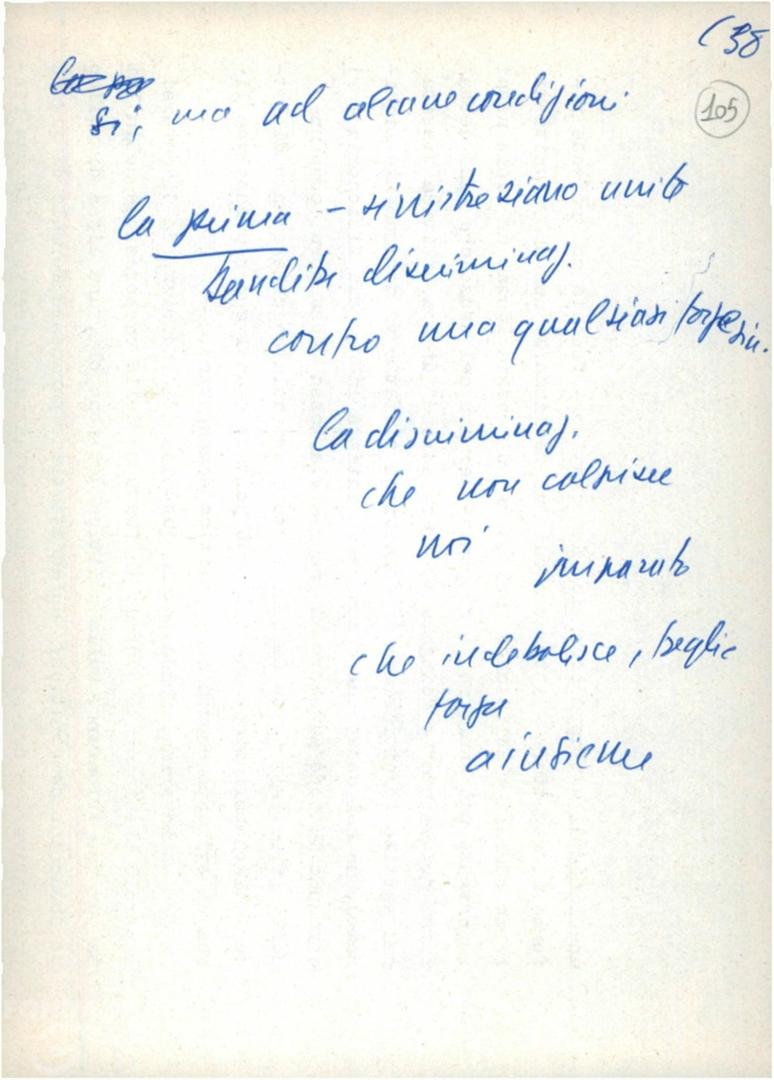 (38
105
Si, ma ad alcune condizioni
la prima - sinistre siano unite
bandite discriminaz.
contro una qualsiasi forza sin.
la discriminaz.
che non colpisce
noi
che indebolisce, toglie
forza
a insieme